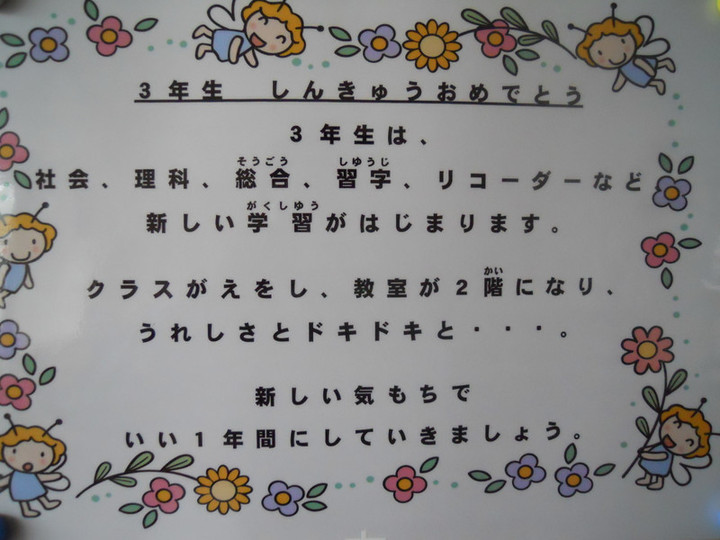 3年生　しんきゅうおめでとう
3年生は、
そうごう　しゆうじ
社会、理科、総合、習字、リコーダーなど
がくしゆう
新しい学習がはじまります。
かい
クラスがえをし、教室が2階になり、
うれしさとドキドキと・・・。
新しい気もちで
いい1年間にしていきましょう。